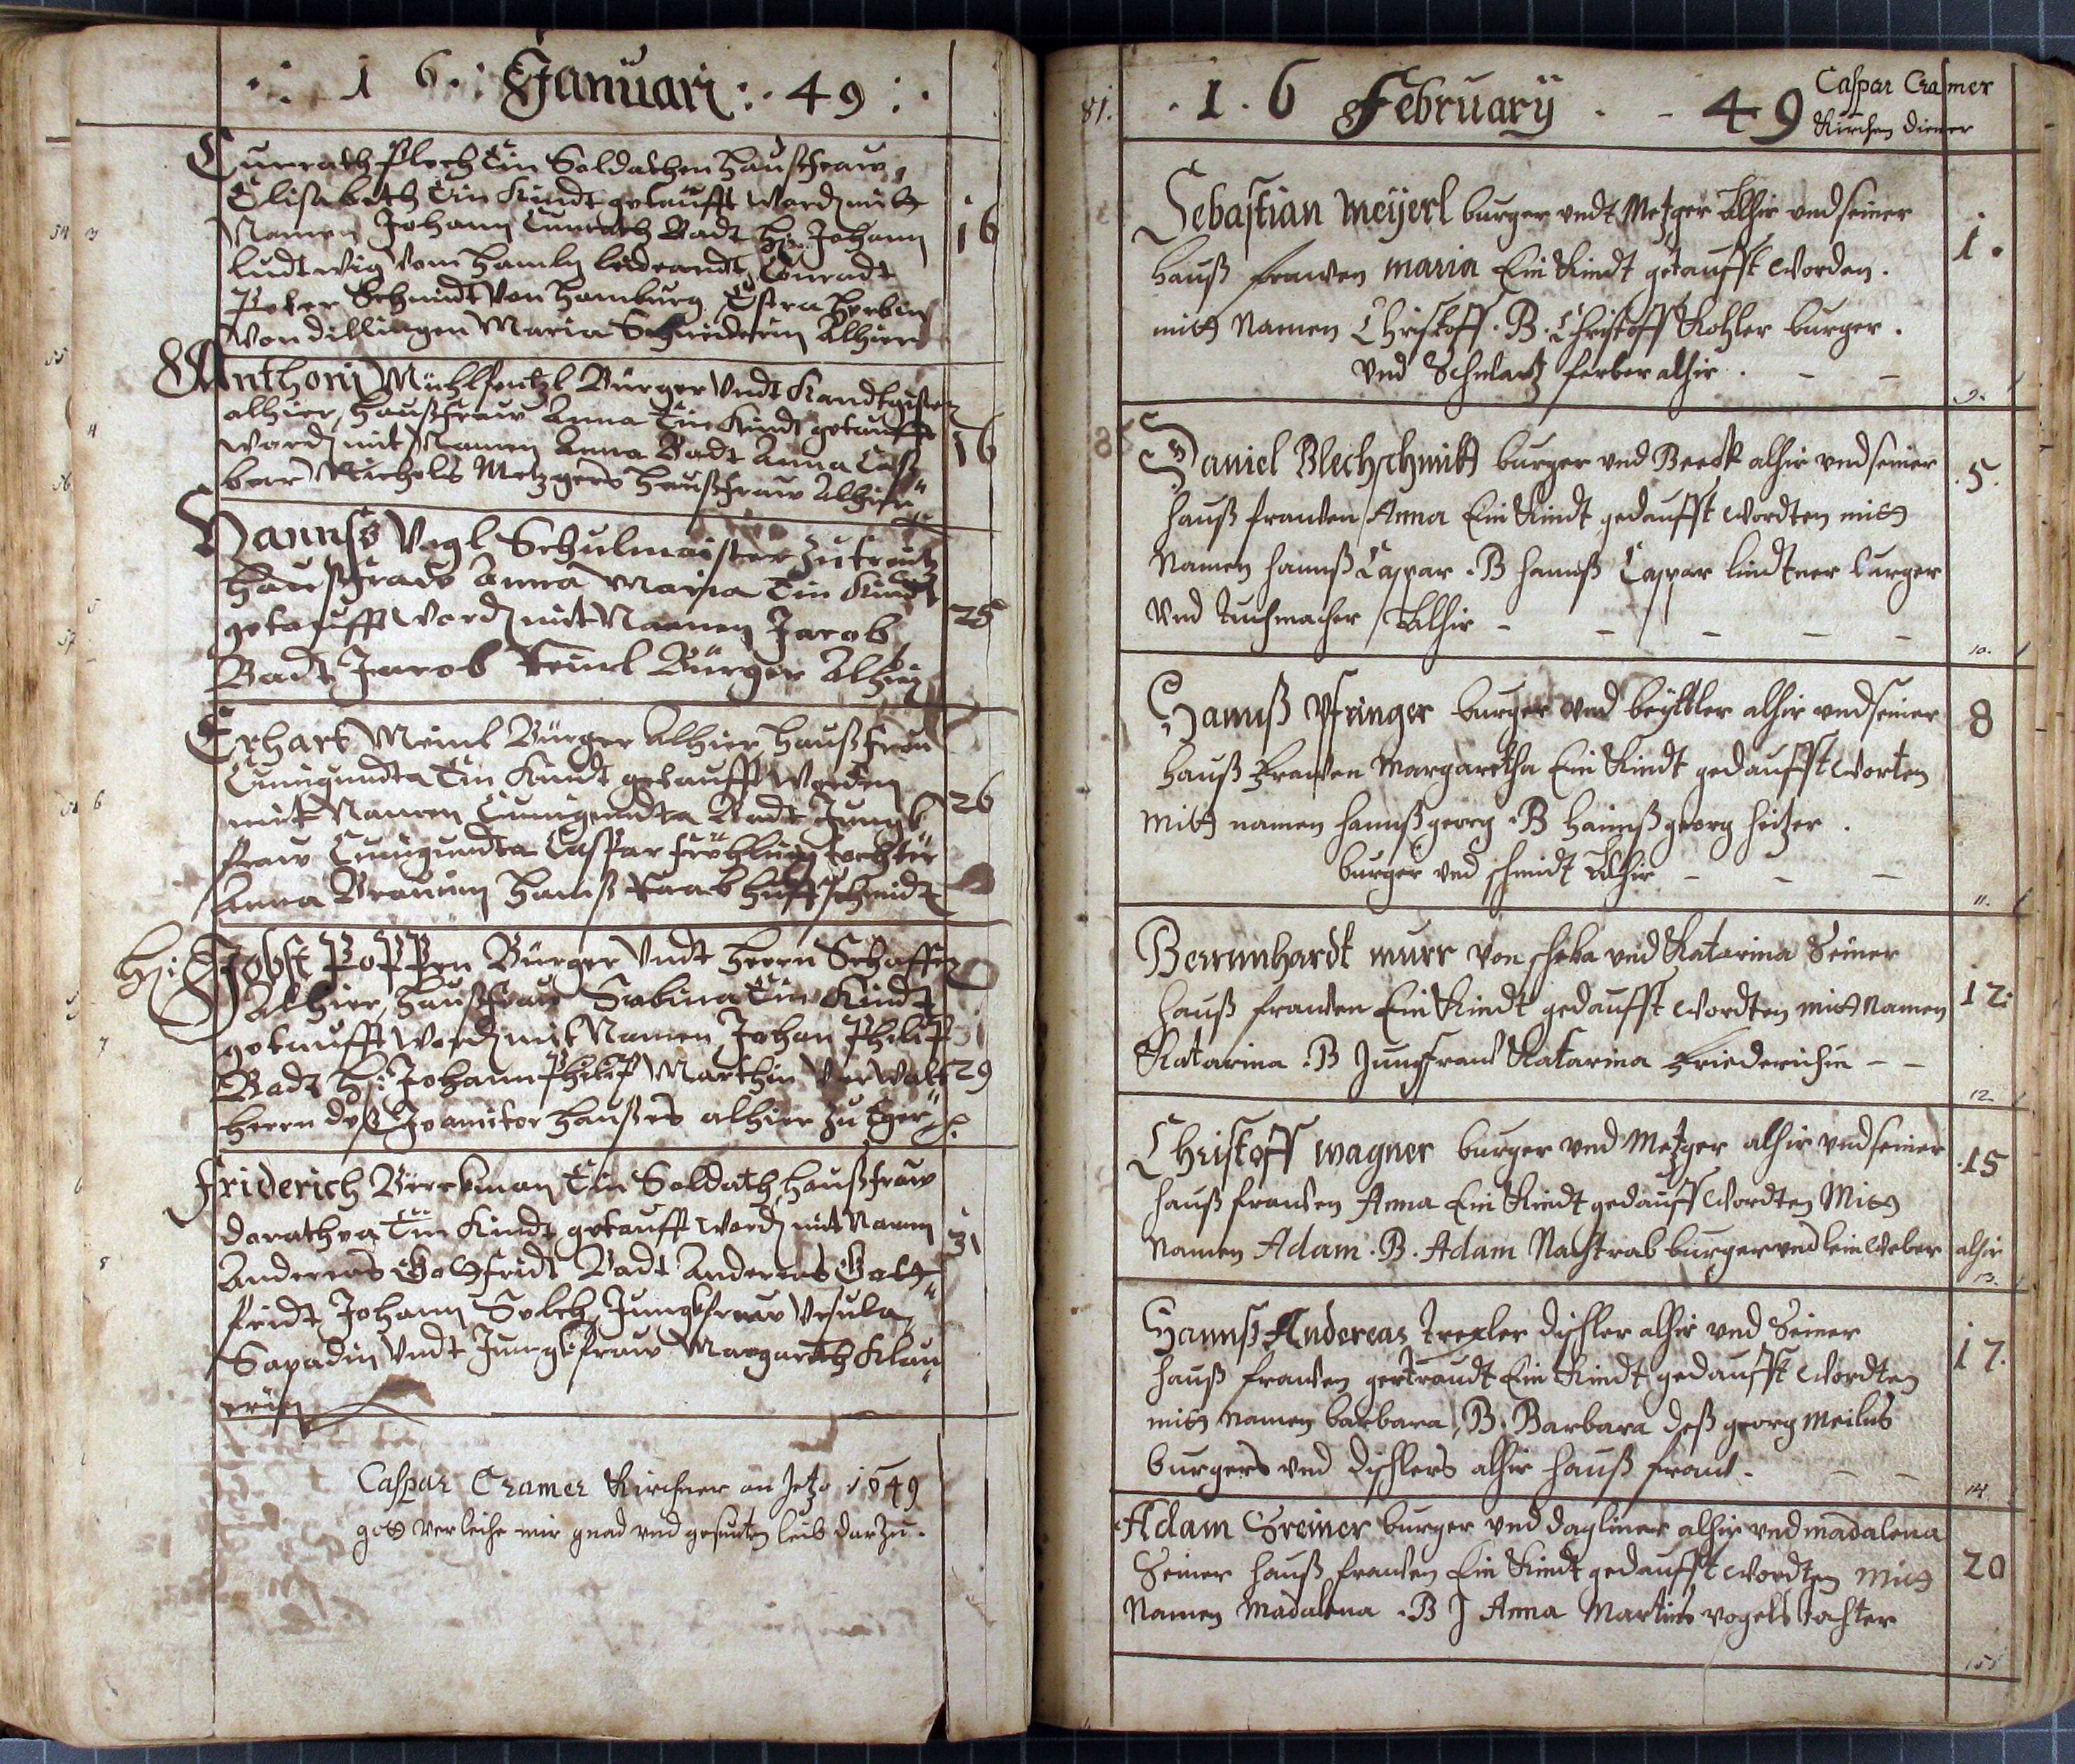 1 6 Januari 49
Cunrath Plech Ein Soldathen haußfraw,
Elisabeth Ein Kindt getaufft word mitt
Namen Johann Cunrath Badt Hr: Johann 16
Ludtwig Vom Conradt
Peter Schmidt Von Hamburg
Von dillingen Maria Schneiderin Alhier
Anthoni Mühlhentzl Bürger Vndt Kandtgisser
alhier, haußfraw Anna Ein Kindt getaufft
word mit Namen Anna Badt Anna 16
Michels Metzgers Haußfraw Alhier
Hannß Vogl Schulmaister zu
Haußfraw Anna Maria Ein Kindt
getaufft word mit Namen Jacob 25
Badt Jacob Bürger Alhier
Erhart Meinl Bürger Alhier Haußfraw
Cunigundta Ein Kindt getaufft worden
mit Namen Cunigundta Badt Jungk 26
fraw Cunigundta Caspar Frühling tochter
Anna Hanß Raab Huffschmidt
Hr: Jobst Poppen Bürger Vndt Herrn Schaffer
Alhier, Haußfraw Sabina Ein Kindt
getaufft word mit Namen Johan Philip
Badt Hr: Johann Philip Marthin Verwalt 29
herrn deß haußes alhier zu Eger
Friderich Bürckman Ein Soldath, haußfraw
dorathea Ein Kindt getaufft word mit Namen 31
Andereas Gottfridt Badt Andereas Gott
fridt Johann Jungkfraw Vrsula
Vndt Jungkfraw Margareth Klau
erin
Caspar Cramer Kirchner an Jetzo 1649
gott verleihe mir gnad vnd gesunten leib darzu.
81.
1 6 February 49
Caspar Cramer
Kirchen diener
Sebastian Meijerl burger vndt Metzger Alhir vnd seiner
hauß frawen maria Ein Kindt getaufft worden. 1.
mitt Namen Christoff. B. Christoff Kohler burger.
Vnd Schwartz ferber alhir. 9.
Daniel Blechschmitt burger vnd Beeck alhir vnd seiner 5.
hauß frawen Anna Ein Kindt gedaufft wordten mitt
Namen hannß Caspar. B hannß Caspar lindtner burger
Vnd tuchmacher Alhir 10.
Hannß Pfringer burger vnd alhir vnd seiner 8
hauß frawen Margaretha Ein Kindt gedaufft worten
mitt namen hannß georg. B Hannß georg hetzer.
burger vnd schmidt Alhir 11.
Berrnnhardt murr von scheba vnd Katarina Seiner
hauß frawen Ein Kindt gedaufft wordten mitt Namen 12:
Katarina. B Jungfraw Katarina Friederichin 12
Christoff wagner burger vnd Metzger alhir vnd seiner 15
hauß frawen Anna Ein Kindt gedaufft wordten Mitt
Namen Adam. B. Adam Nachtrab burger vnd lein Weber alhir
13.
Hannß Andereas trexler dischler alhir vnd Seiner
hauß frawen gertraudt Ein Kindt gedaufft wordten 17.
mitt Namen barbara, B. Barbara deß georg meilns
burgers vnd dischlers alhir hauß fraw. 14
Adam Greiner burger vnd dagliner alhir vnd madalena
Seiner hauß frawen Ein Kindt gedaufft wordten mitt 20
Namen Madalena. B J Anna Martins vogels tochter
15